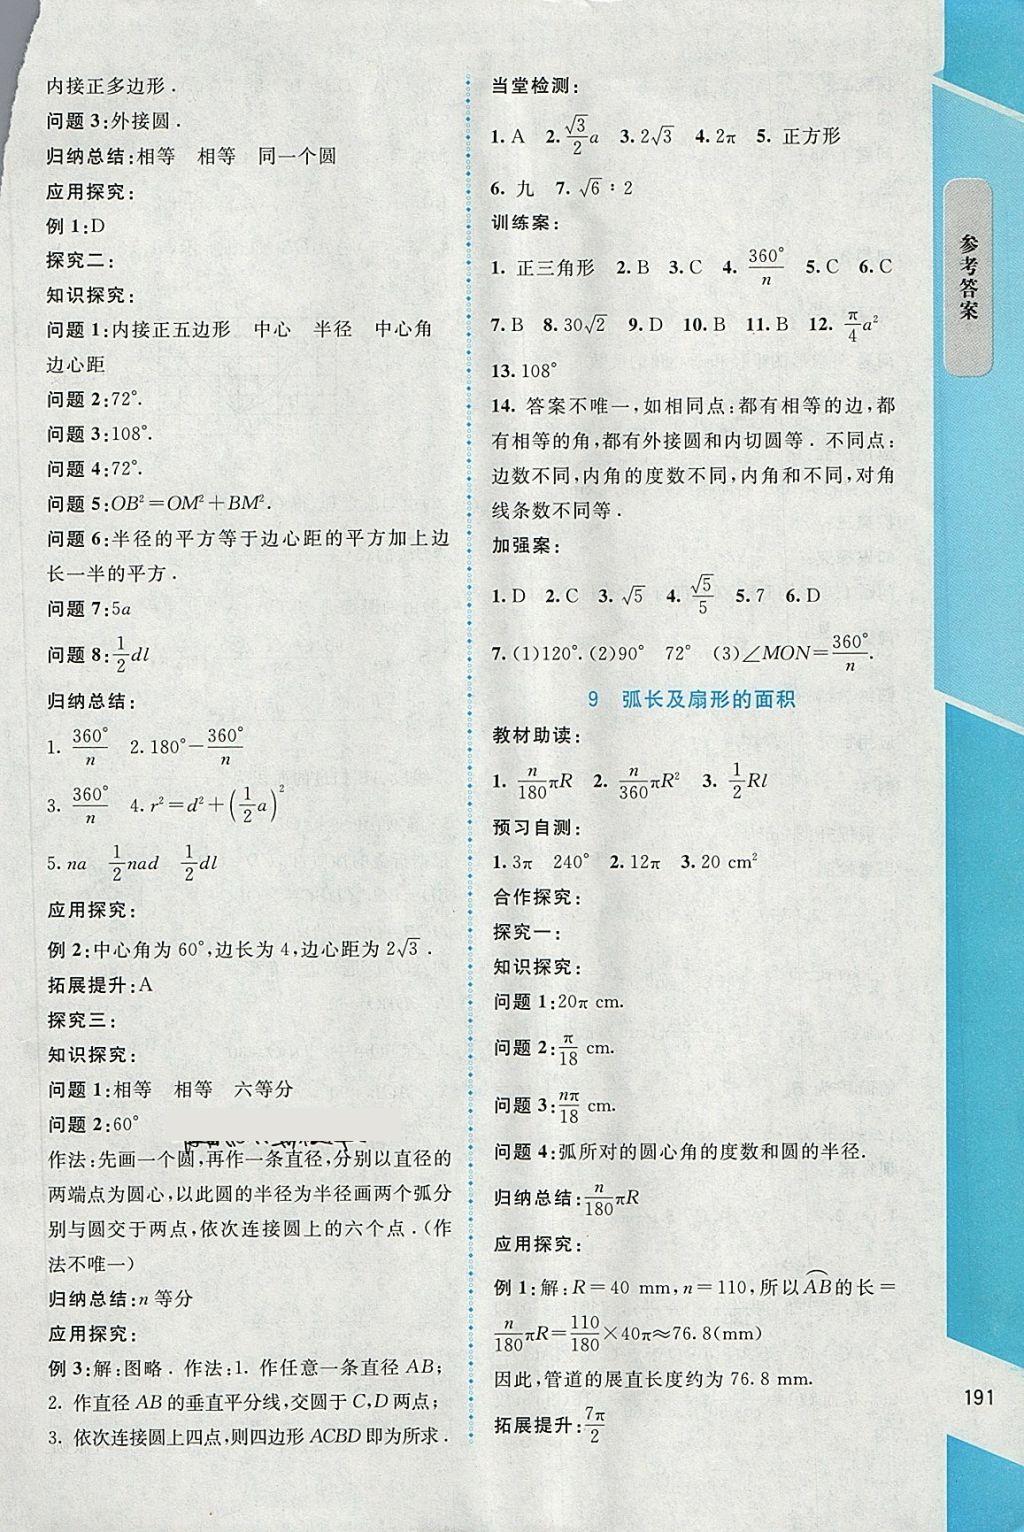 内接正多边形.
问题 3:外接圆.
归纳总结:相等 相等 同一个圆
应用探究:
例 1:D
探究二:
知识探究:
问题 1:内接正五边形 中心 半径 中心角
边心距
问题 2:72°.
问题 3:108°.
问题 4:72°.
问题 5:OB²=OM²+BM².
问题 6:半径的平方等于边心距的平方加上边
长一半的平方.
问题 7:5a
问题 8:1/2 dl
归纳总结:
1. 360°/n 2. 180°−360°/n
3. 360°/n 4. r²=d²+(1/2 a)²
5. na 1/2 nad 1/2 dl
应用探究:
例 2:中心角为 60°,边长为 4,边心距为 2√3.
拓展提升:A
探究三:
知识探究:
问题 1:相等 相等 六等分
问题 2:60°
作法:先画一个圆,再作一条直径,分别以直径的
两端点为圆心,以此圆的半径为半径画两个弧分
别与圆交于两点,依次连接圆上的六个点.(作
法不唯一)
归纳总结:n 等分
应用探究:
例 3:解:图略. 作法:1. 作任意一条直径 AB;
2. 作直径 AB 的垂直平分线,交圆于 C,D 两点;
3. 依次连接圆上四点,则四边形 ACBD 即为所求.
当堂检测:
1. A 2. √3/2 a 3. 2√3 4. 2π 5. 正方形
6. 九 7. √6∶2
训练案:
1. 正三角形 2. B 3. C 4. 360°/n 5. C 6. C
7. B 8. 30√2 9. D 10. B 11. B 12. π/4 a²
13. 108°
14. 答案不唯一,如相同点:都有相等的边,都
有相等的角,都有外接圆和内切圆等. 不同点:
边数不同,内角的度数不同,内角和不同,对角
线条数不同等.
加强案:
1. D 2. C 3. √5 4. √5/5 5. 7 6. D
7. (1)120°. (2)90° 72° (3)∠MON=360°/n.
9 弧长及扇形的面积
教材助读:
1. n/180 πR 2. n/360 πR² 3. 1/2 Rl
预习自测:
1. 3π 240° 2. 12π 3. 20 cm²
合作探究:
探究一:
知识探究:
问题 1:20π cm.
问题 2:π/18 cm.
问题 3:nπ/18 cm.
问题 4:弧所对的圆心角的度数和圆的半径.
归纳总结:n/180 πR
应用探究:
例 1:解:R=40 mm,n=110,所以AB的长=
n/180 πR=110/180×40π≈76.8(mm)
因此,管道的展直长度约为 76.8 mm.
拓展提升:7π/2
参考答案
191